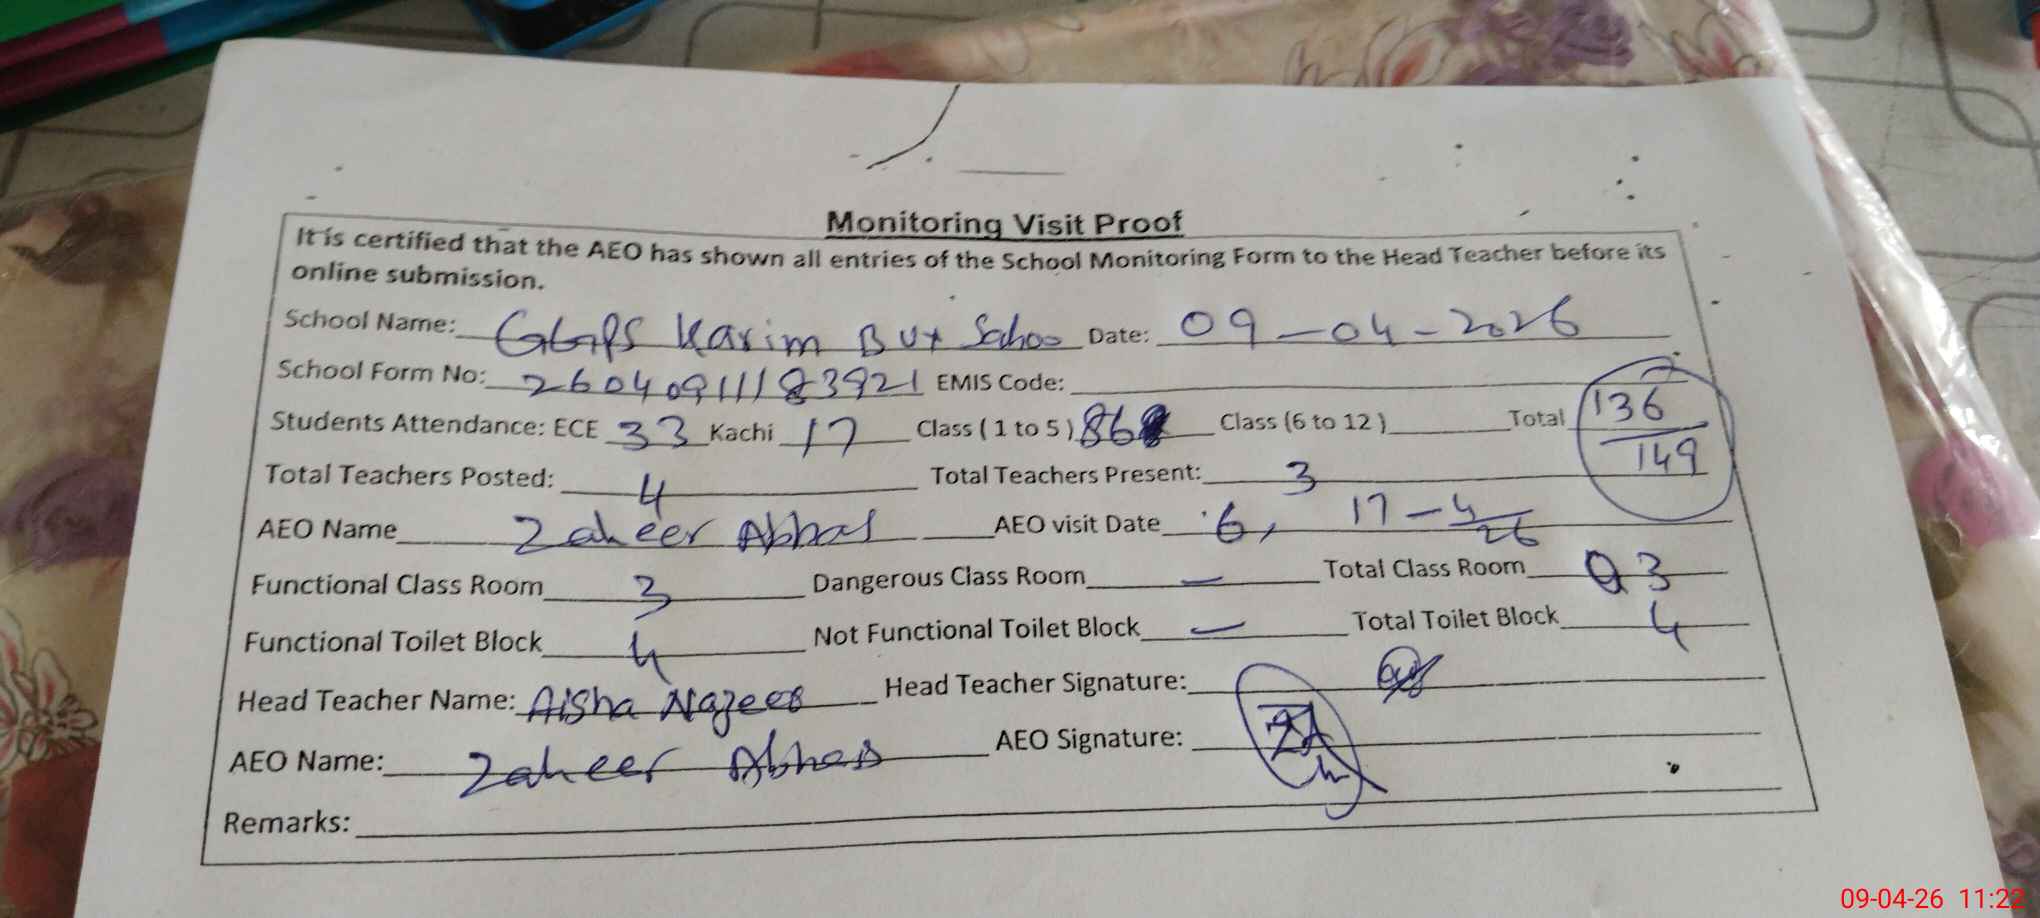 Monitoring Visit Proof
It is certified that the AEO has shown all entries of the School Monitoring Form to the Head Teacher before its
online submission.
School Name: GGPS Karim Bux Schoo Date: 09-04-2026
School Form No: 26040911183921 EMIS Code:
Students Attendance: ECE 33 Kachi 17 Class ( 1 to 5 ) 86 Class (6 to 12 ) Total 136
149
Total Teachers Posted: 4 Total Teachers Present: 3
AEO Name Zaheer Abbas AEO visit Date 6, 17-4
26
Functional Class Room 3 Dangerous Class Room — Total Class Room 3
Functional Toilet Block 4 Not Functional Toilet Block — Total Toilet Block 4
Head Teacher Name: Aisha Najeeb Head Teacher Signature:
AEO Name: Zaheer Abbas AEO Signature:
Remarks:
09-04-26 11:22